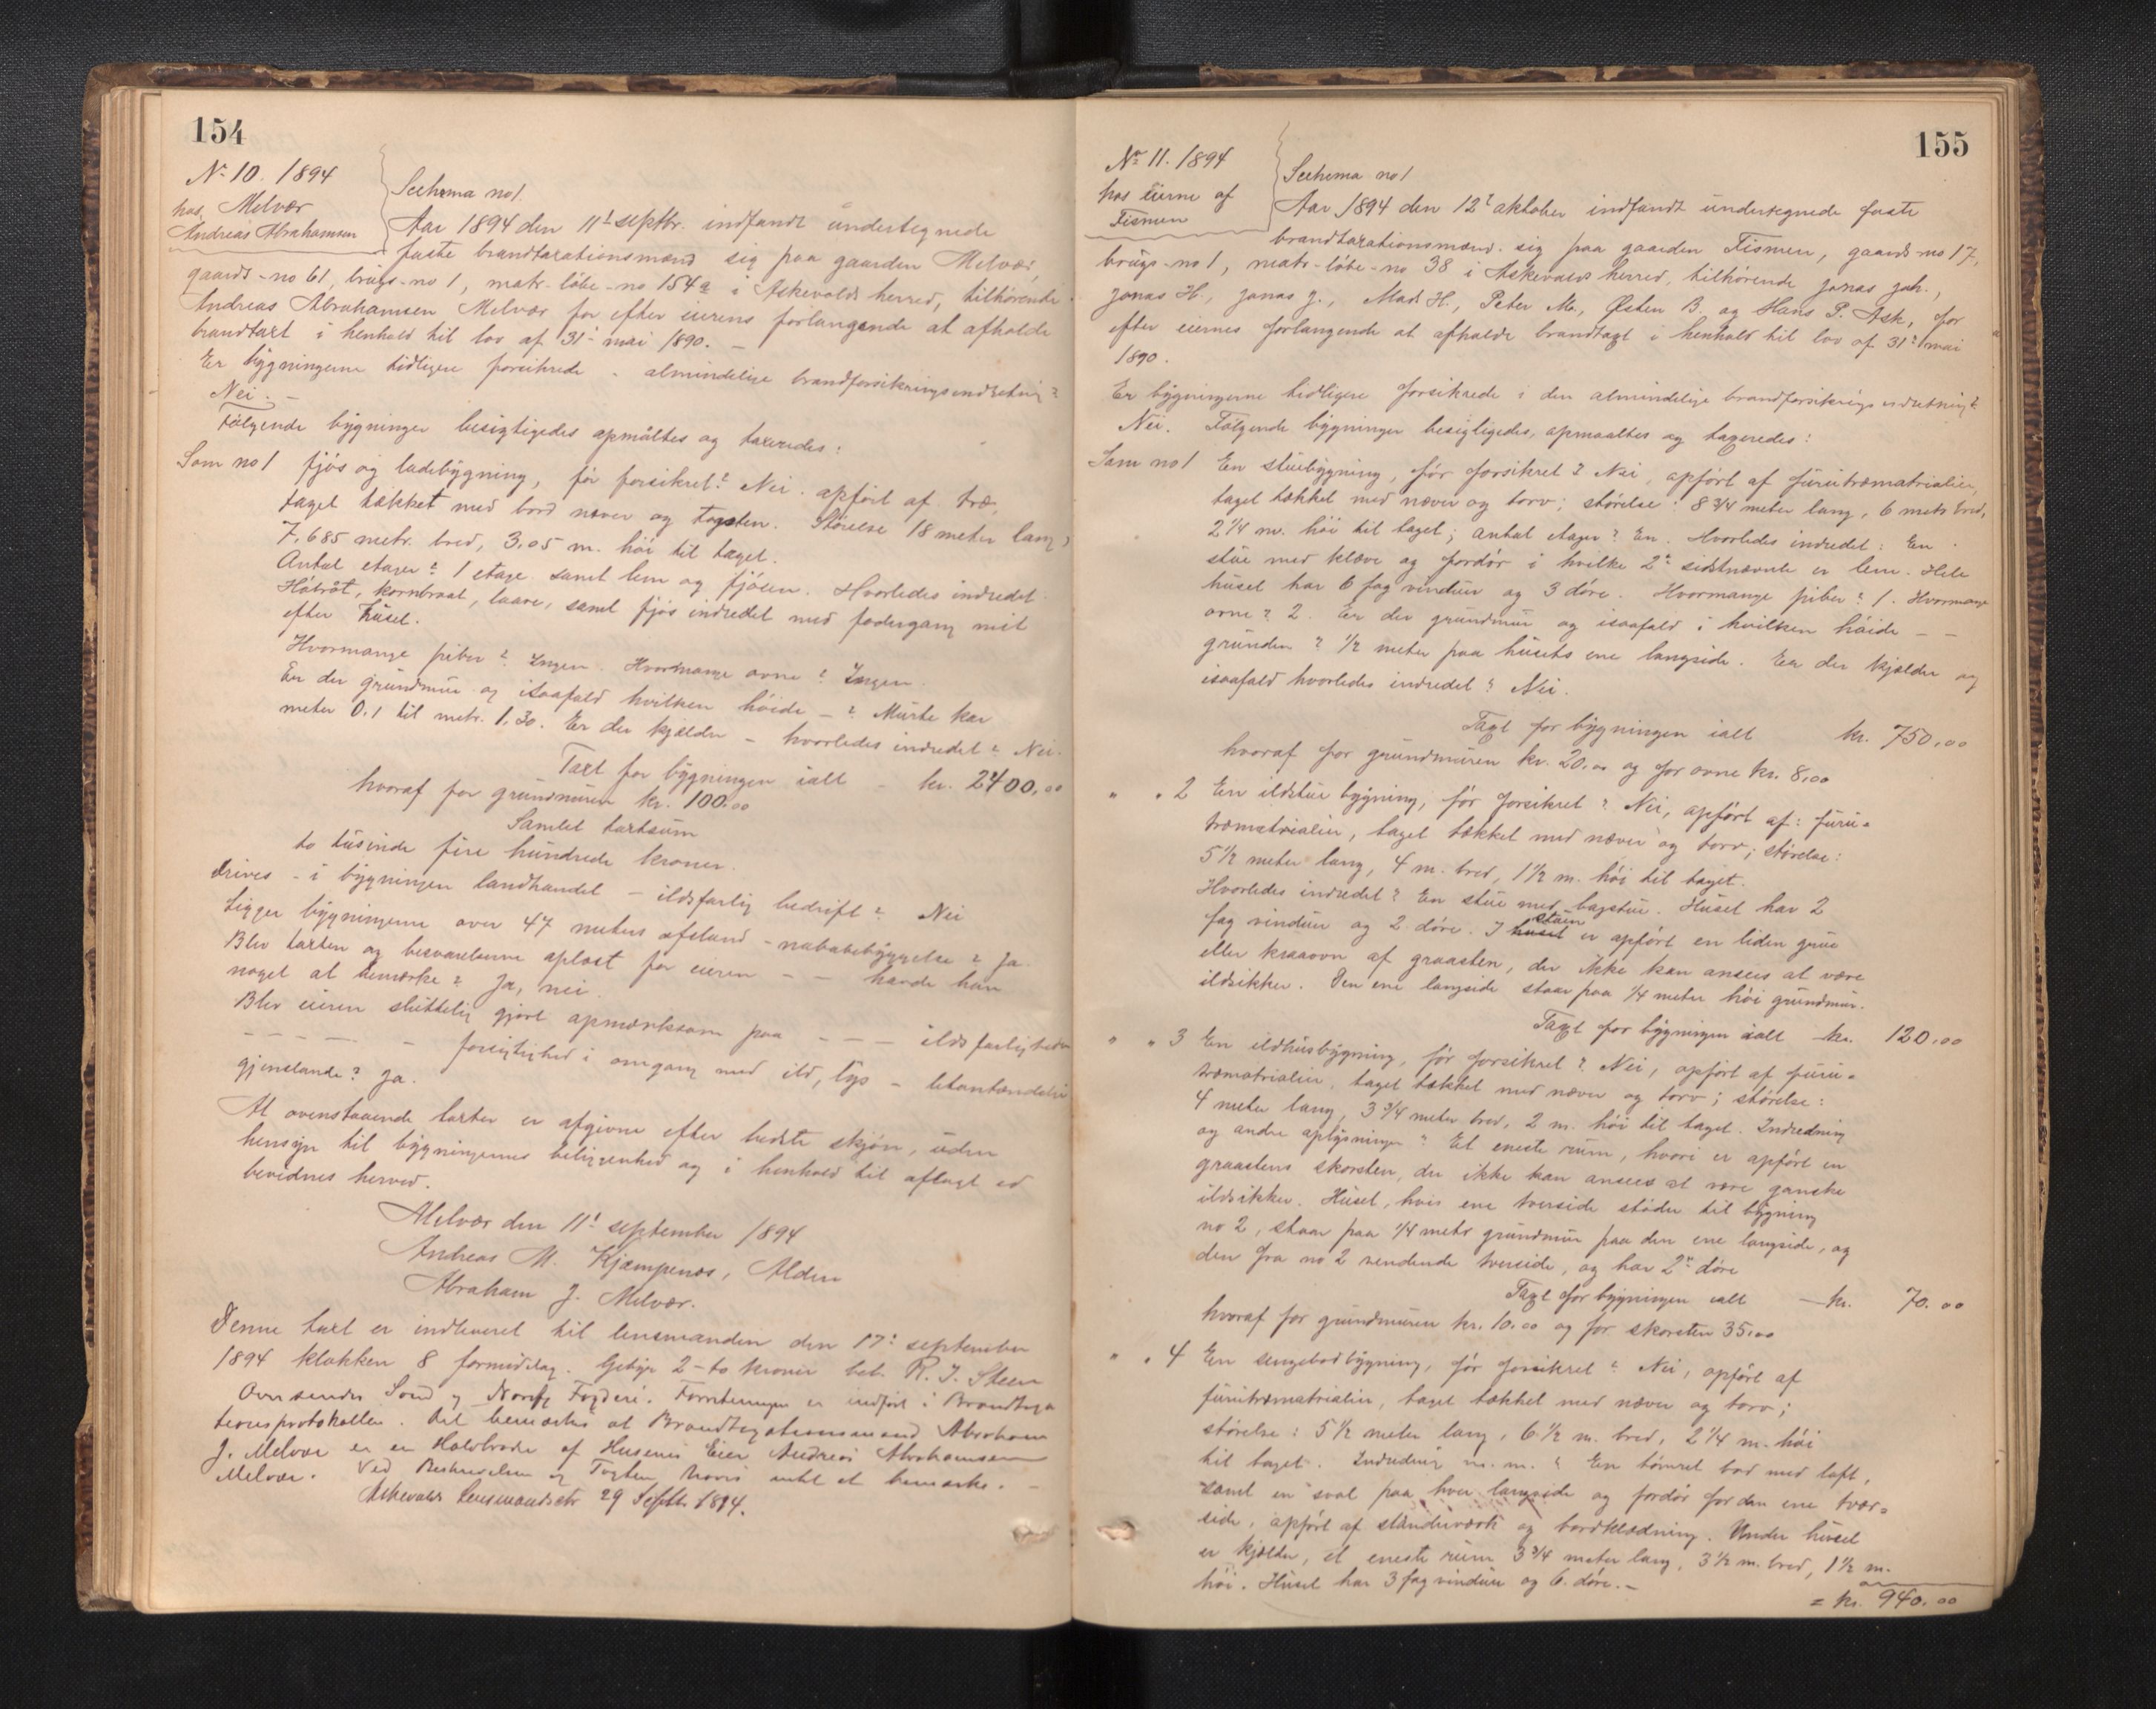 154
No 10. 1894
hos Melvær
Andreas Abrahamsen
Schema no 1.
Aar 1894 den 11te septbr. indfandt undertegnede
faste brandtaxationsmænd sig paa gaarden Melvær,
gaards-no 61, brugs-no 1, matr.-løbe-no 154a i Askevolds herred, tilhørende
Andreas Abrahamsen Melvær for efter eierens forlangende at afholde
brandtaxt i henhold til lov af 31te mai 1890. –
Er bygningerne tidligere forsikrede - almindelige brandforsikringsindretning?
Nei. –
Følgende bygninger besigtigedes opmåltes og taxeredes:
Som no 1 fjøs og ladebygning, før forsikret? Nei. opført af træ,
taget tækket med bord næver og tagsten. Størelse 18 meter lang,
7,685 metr. bred, 3,05 m. høi til taget.
Antal etager? 1 etage samt lem og fjøsen. Hvorledes indredet.
Høbråt, kornbraat, laave, samt fjøs indredet med fodergang mit
efter huset.
Hvormange piber? Ingen. Hvormange ovne? Ingen.
Er der grundmur og isaafald hvilken høide –? Murte kar
meter 0,1 til metr. 1,30. Er der kjælder – hvorledes indredet? Nei.
Taxt for bygningen ialt – kr. 2400,00
hvoraf for grundmuren kr. 100.00
Samlet taxtsum
to tusinde fire hundrede kroner.
Drives - i bygningen landhandel – ildsfarlig bedrift? Nei
Ligger bygningerne over 47 meters afstand – nabobebyggelse? Ja.
Blev taxten og besvarelserne oplæst for eieren – – havde han
noget at bemærke? Ja, nei.
Blev eieren sluttelig gjort opmærksom paa – – – ildsfarligheden
– – – – forsigtighed i omgang med ild, lys – letantændelige
gjenstande? Ja.
At ovenstaaende taxter er afgivne efter bedste skjøn, uden
hensyn til bygningernes beliggenhed og i henhold til aflagt ed
bevidnes herved.
Melvær den 11te september 1894
Andreas M. Kjempenæs, Alden
Abraham J. Melvær.
Denne taxt er indleveret til lensmanden den 17de september
1894 klokken 8 formiddag. Gebyr 2 – to kroner bet. R. J. Steen
Oversendes Sønd og Nordfj Fogderi. Forretningen er indført i Brandtaxa
tionsprotokollen. Det bemærkes at Brandtaxationsmand Abraham
J. Melvær er en Halvbroder af Husenes Eier Andreas Abrahamsen
Melvær. Ved Beskrivelsen og Taxten haves intet at bemærke. –
Askevolds Lensmandsktr 29 Septbr 1894.
155
No 11. 1894
hos eierne af
Tismen
Schema no 1
Aar 1894 den 12te oktober indfandt undertegnede faste
brandtaxationsmænd sig paa gaarden Tismen, gaards-no 17,
brugs-no 1, matr-løbe-no 38 i Askevolds herred, tilhørende Jonas Joh.,
Jonas H., Jonas J., Mads H., Peter M., Østen B. og Hans P. Ask, for
efter eiernes forlangende at afholde brandtaxt i henhold til lov af 31te mai
1890.
Er bygningerne tidligere forsikrede i den almindelige brandforsikrings indretning?
Nei. Følgende bygninger besigtigedes, opmaaltes og taxeredes:
Som no 1 En stuebygning, før forsikret? Nei, opført af furutræmatrialier,
taget tækket med næver og torv; størelse: 8 3/4 meter lang, 6 metr bred,
2 1/4 m. høi til taget; antal etager? En. Hvorledes indredet: En
stue med kleve og fordør i hvilke 2de sidstnævnte er lem. Hele
huset har 6 fag vinduer og 3 døre. Hvormange piber? 1. Hvormange
ovne? 2. Er der grundmur og isaafald i hvilken høide – –
grunden? 1/2 meter paa husets ene langside. Er der kjælder og
isaafald hvorledes indredet? Nei.
Taxt for bygningen ialt kr. 750,00
hvoraf for grundmuren kr. 20.00 og for ovne kr. 8,00
" " 2 En ildstue bygning, før forsikret? Nei, opført af: furu-
træmatrialier, taget tækket med næver og torv; størelse:
5 1/2 meter lang, 4 m. bred, 1 1/2 m. høi til taget.
Hvorledes indredet? En stue med bagstue. Huset har 2
fag vinduer og 2 døre. I huset stuen er opført en liden grue
eller kraaovn af graasten, der ikke kan ansees at være
ildsikker. Den ene langside staar paa 1/4 meter høi grundmur.
Taxt for bygningen ialt – kr. 120,00
" " 3 En ildhusbygning, før forsikret? Nei, opført af furu-
træmatrialier, taget tækket med næver og torv; størelse:
4 meter lang, 3 3/4 meter bred, 2 m. høi til taget. Indredning
og andre oplysninger? Et eneste rum, hvori er opført en
graastens skorsten, der ikke kan ansees at være ganske
ildsikker. Huset, hvis ene tverside støder til bygning
no 2, staar paa 1/4 metr grundmur paa den ene langside, og
den fra no 2 vendende tverside, og har 2de døre
Taxt for bygningen ialt – kr. 70.00
hvoraf for grundmuren kr. 10.00 og for skorsten 35,00
" " 4 En sengebodbygning, før forsikret? Nei, opført af
furutræmatrialier, taget tækket med næver og torv;
størelse: 5 1/2 meter lang, 6 1/2 m. bred, 2 1/4 m. høi
til taget. Indredning m. m.? En tømret bod med loft,
samt en sval paa hver langside og fordør for den ene tvær-
side, opført af standerværk og bordklædning. Under huset
er kjælder, et eneste rum 3 3/4 meter lang, 3 1/2 m. bred, 1 1/2 m.
høi. Huset har 3 fag vinduer og 6 døre. –
= kr. 940.00